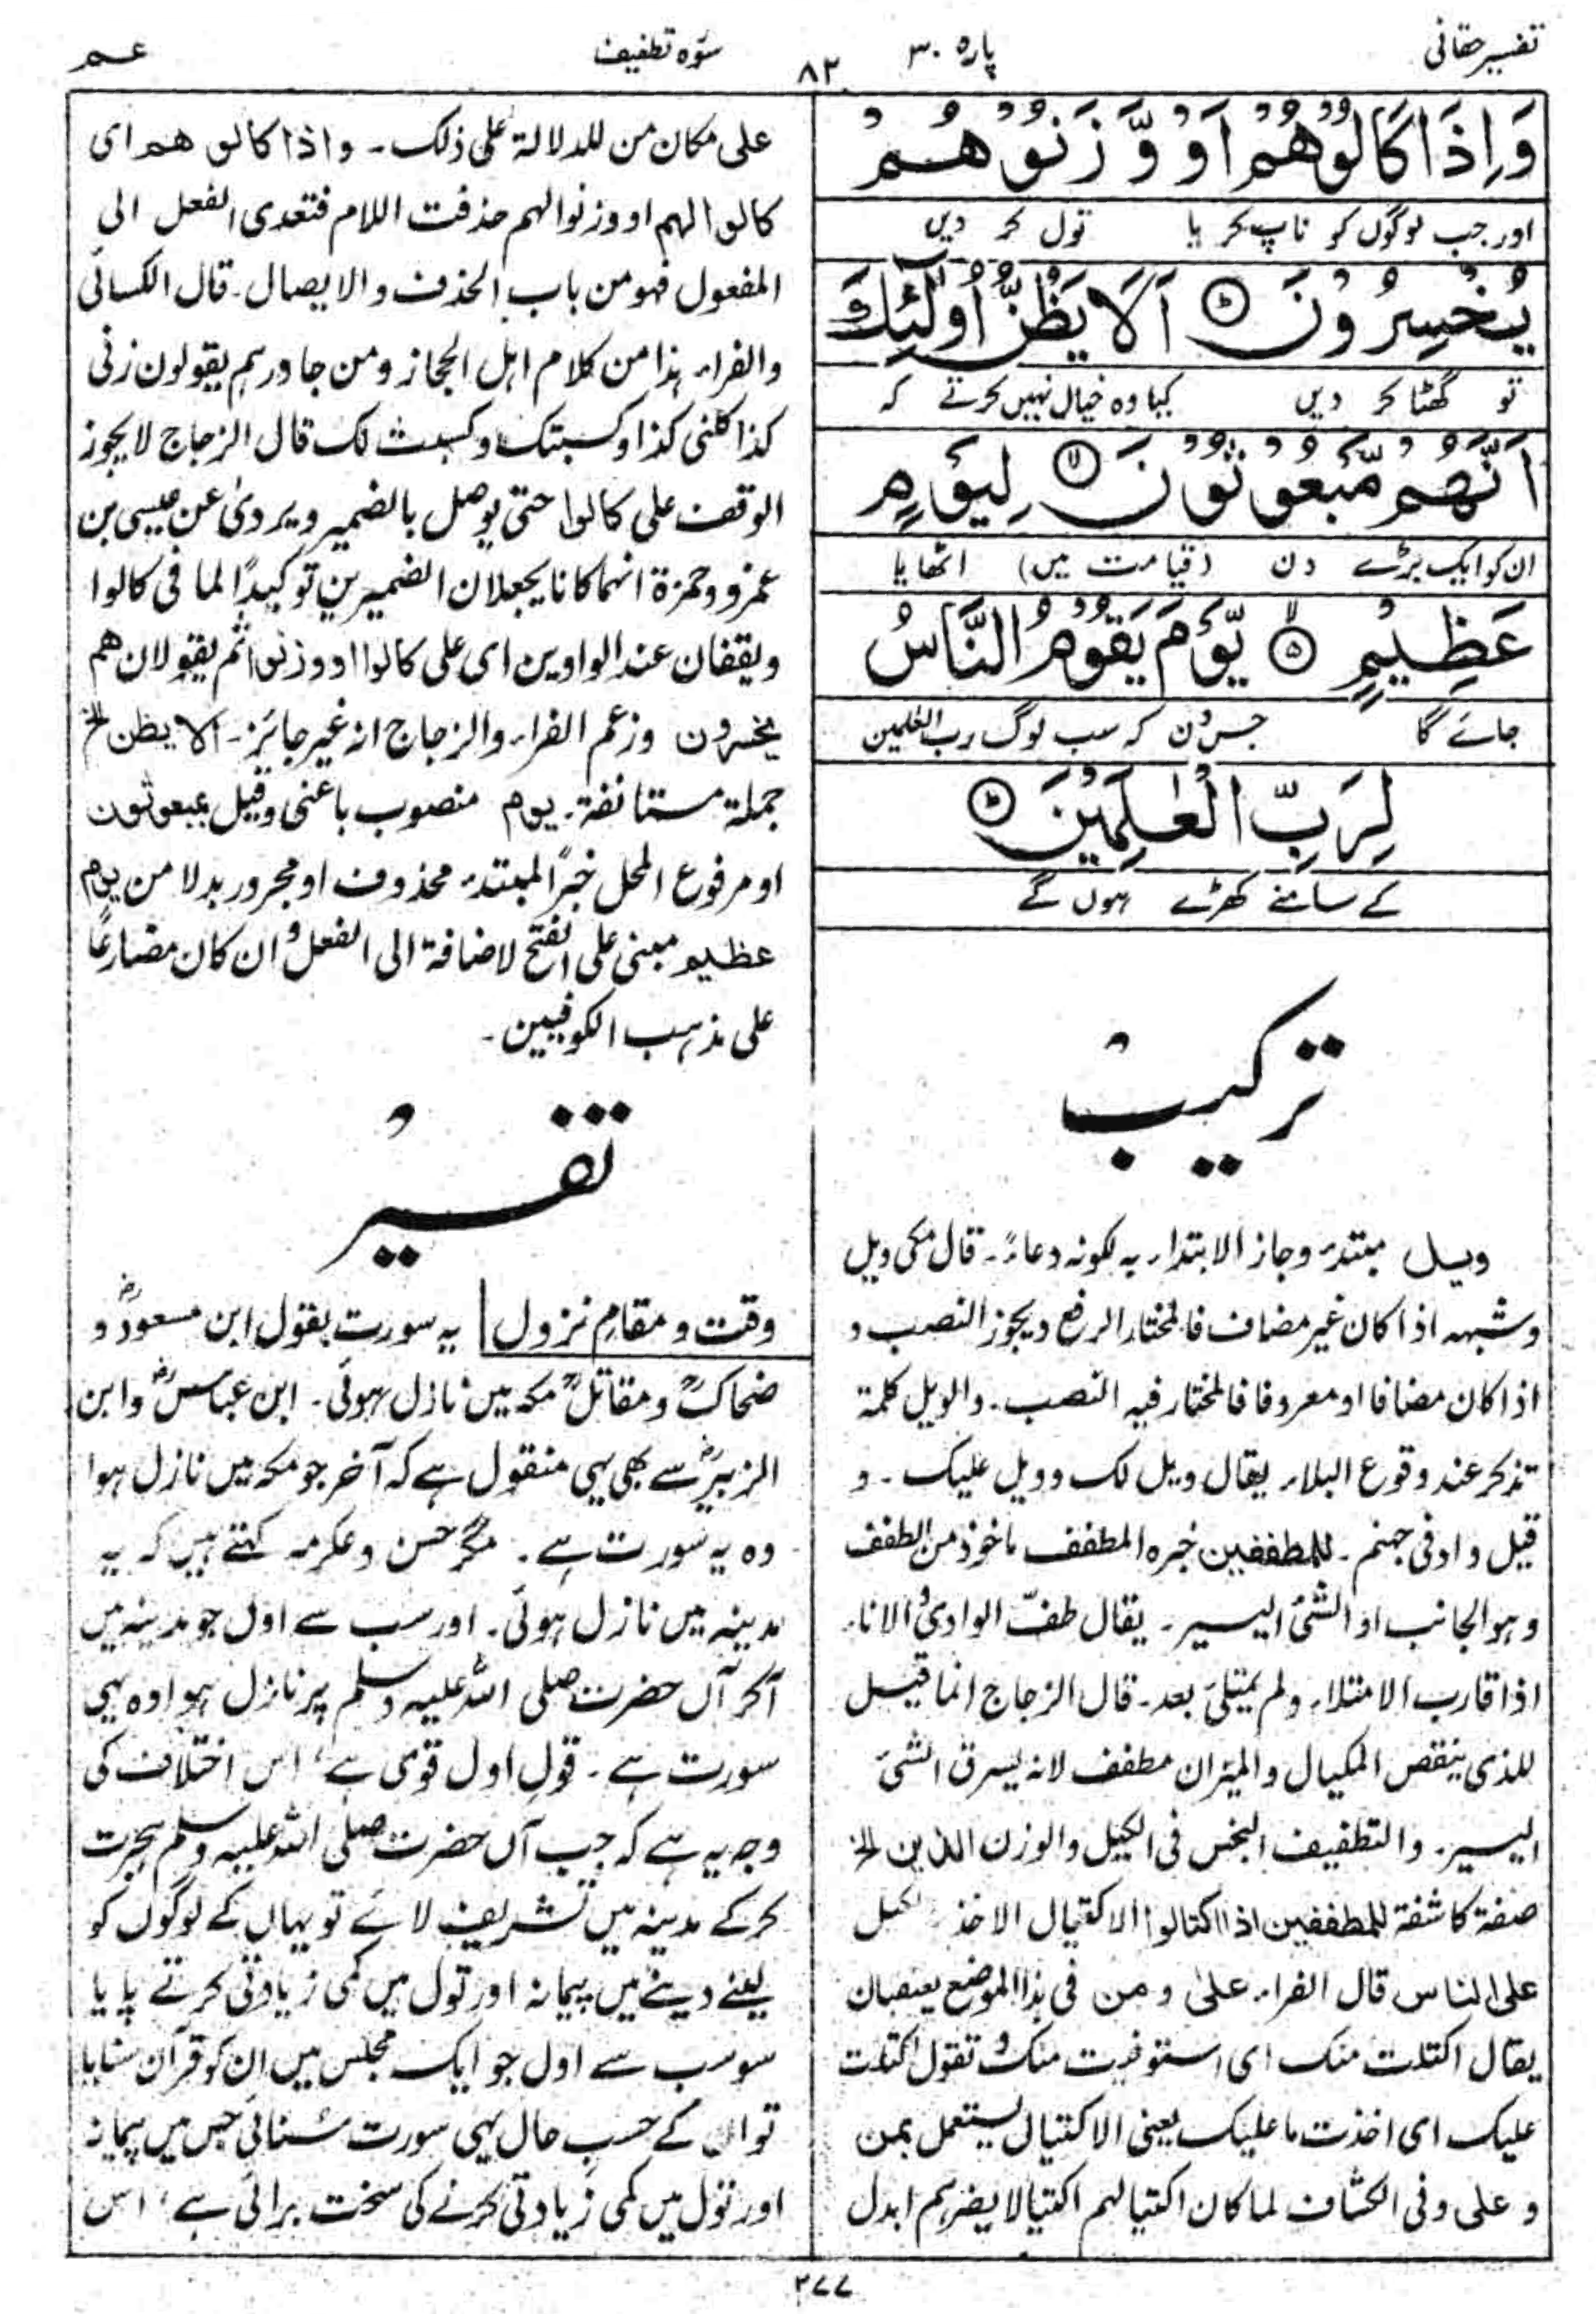 تفسیر حقانی
پارہ ۳۰
۸۲
سورہ تطفیف
عم
وَاِذَا كَالُوْهُمْ اَوْ وَّزَنُوْهُمْ
اور جب لوگوں کو ناپ کر یا تول کر دیں
يُخْسِرُوْنَ ۞ اَلَا يَظُنُّ اُولٰٓئِكَ
تو گھٹا کر دیں کیا وہ خیال نہیں کرتے کہ
اَنَّهُمْ مَّبْعُوْثُوْنَ ۞ لِيَوْمٍ
ان کو ایک بڑے دن (قیامت میں) اٹھایا
عَظِيْمٍ ۞ يَّوْمَ يَقُوْمُ النَّاسُ
جائے گا جس دن کہ سب لوگ رب العٰلمین
لِرَبِّ الْعٰلَمِيْنَ ۞
کے سامنے کھڑے ہوں گے
ترکیب
ویل مبتدء وجاز الابتداء بہ لکونہ دعاءً۔ قال مکی ویل
وشبہہ اذا کان غیر مضاف فالمختار الرفع ویجوز النصب و
اذا کان مضافا او معروفا فالمختار فیہ النصب۔ والویل کلمۃ
تذکر عند وقوع البلاء یقال ویل لک وویل علیک۔ و
قیل وادفی جہنم۔ للمطففین خبرہ المطفف ماخوذ من الطفف
وہو الجانب او الشئ الیسیر۔ یقال طفّ الوادیُ والاناء
اذا قارب الامتلاء ولم یمتلیٔ بعد۔ قال الزجاج انما قیل
للذی ینقص المکیال والمیزان مطفف لانہ یسرق الشئ
الیسیر۔ والتطفیف البخس فی الکیل والوزن الذین الخ
صفۃ کاشفۃ للمطففین اذا اکتالوا الاکتیال الاخذ بالکیل
علی الناس قال الفراء علیٰ ومن فی ہذا الموضع یعتقبان
یقال اکتلت منک ای استوفیت منک و تقول اکتلت
علیک ای اخذت ما علیک یعنی الاکتیال یستعمل بمن
و علی وفی الکشاف لما کان اکتیالہم اکتیالا یضرہم ابدل
علی مکان من للدلالۃ علی ذلک۔ واذا کالوھم ای
کالوا لہم او وزنوا لہم حذفت اللام فتعدی الفعل الی
المفعول فہو من باب الحذف والایصال۔ قال الکسائی
والفراء ہذا من کلام اہل الحجاز ومن جاورہم یقولون زنی
کذا کلنی کذا وکسبتک وکسبت لک قال الزجاج لایجوز
الوقف علی کالوا حتی یوصل بالضمیر ویرویٰ عن عیسی بن
عمرو وحمزۃ انہما کانا یجعلان الضمیرین توکیدًا لما فی کالوا
ویقفان عند الواوین ای علی کالوا او وزنوا ثم یقولان ھم
یخسرون وزعم الفراء والزجاج انہ غیر جائز۔ الا یظن الخ
جملۃ مستانفۃ۔ یوم منصوب باعنی وقیل بمبعوثون
او مرفوع المحل خبرًا لمبتدء محذوف او مجرور بدلا من یوم
عظیم مبنی علی الفتح لاضافۃ الی الفعل و ان کان مضارعًا
علی مذہب الکوفیین۔
تفسیر
وقت و مقامِ نزول یہ سورت بقول ابن مسعودؓ و
ضحاکؒ و مقاتلؒ مکہ میں نازل ہوئی۔ ابن عباسؓ و ابن
الزبیرؓ سے بھی یہی منقول ہے کہ آخر جو مکہ میں نازل ہوا
وہ یہ سورت ہے۔ مگر حسن و عکرمہ کہتے ہیں کہ یہ
مدینہ میں نازل ہوئی۔ اور سب سے اول جو مدینہ میں
آکر آں حضرت صلی اللہ علیہ وسلم پر نازل ہوا وہ یہی
سورت ہے۔ قول اول قوی ہے، اس اختلاف کی
وجہ یہ ہے کہ جب آں حضرت صلی اللہ علیہ وسلم ہجرت
کرکے مدینہ میں تشریف لائے تو یہاں کے لوگوں کو
لینے دینے میں پیمانہ اور تول میں کمی زیادتی کرتے پایا
سو سب سے اول جو ایک مجلس میں ان کو قرآن سنایا
تو ان کے حسبِ حال یہی سورت سُنائی جس میں پیمانہ
اور تول میں کمی زیادتی کرنے کی سخت برائی ہے، اس
۲۷۷